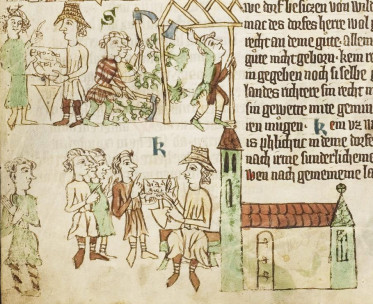 we dorf besitzen von wild
mac des dorfes herre wol
recht an deme gute. allein
gute nicht
in gegeben noch si selbe
landes richtere sin recht m
sin gewette mite gemin
ren mugen. k ein uz w
is phlichtic in deme dorfe
nach irme sunderlicheme
wen nach gemeineme la
Ego dei
k